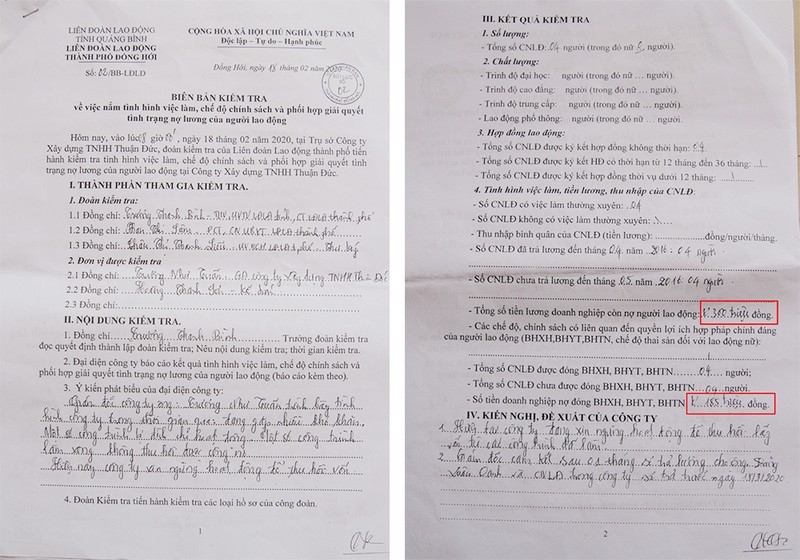 LIÊN ĐOÀN LAO ĐỘNG
TỈNH QUẢNG BÌNH
LIÊN ĐOÀN LAO ĐỘNG
THÀNH PHỐ ĐỒNG HỚI
Số: 02/BB-LĐLĐ
CỘNG HÒA XÃ HỘI CHỦ NGHĨA VIỆT NAM
Độc lập - Tự do - Hạnh phúc
Đồng Hới, ngày 18 tháng 02 năm
BIÊN BẢN KIỂM TRA
về việc nắm tình hình việc làm, chế độ chính sách và phối hợp giải quyết
tình trạng nợ lương của người lao động
Hôm nay, vào lúc giờ ngày 18 tháng 02 năm 2020, tại Trụ sở Công ty
Xây dựng TNHH Thuận Đức, đoàn kiểm tra của Liên đoàn Lao động thành phố tiến
hành kiểm tra tình hình việc làm, chế độ chính sách và phối hợp giải quyết tình
trạng nợ lương của người lao động tại Công ty Xây dựng TNHH Thuận Đức.
I. THÀNH PHẦN THAM GIA KIỂM TRA.
1. Đoàn kiểm tra:
1.1 Đồng chí: Trương Thanh Bình CT LĐLĐ thành phố
1.2 Đồng chí: LĐLĐ thành phố
1.3 Đồng chí: Trần Thị Thanh Thư ký
2. Đơn vị được kiểm tra
2.1 Đồng chí: Trương Như Tuấn GĐ công ty Xây dựng TNHH
2.2 Đồng chí: Thanh Kế toán
2.3 Đồng chí:
II. NỘI DUNG KIỂM TRA.
1. Đồng chí: Trương Thanh Bình Trưởng đoàn kiểm tra
đọc quyết định thành lập đoàn kiểm tra; Nêu nội dung kiểm tra; thời gian kiểm tra.
2. Đại diện công ty báo cáo kết quả tình hình việc làm, chế độ chính sách và
phối hợp giải quyết tình trạng nợ lương của người lao động (báo cáo kèm theo).
3. Ý kiến phát biểu của đại diện công ty:
Giám đốc công ty ông: Trương Như Tuấn trình bày tình
hình công ty trong thời gian qua đang gặp nhiều khó khăn.
Một số công trình bị đình chỉ hoạt động. Một số công trình
làm xong không thu hồi được công nợ
Hiện nay công ty xin ngừng hoạt động để thu hồi vốn
4. Đoàn Kiểm tra tiến hành kiểm tra các loại hồ sơ của công đoàn.
1
III. KẾT QUẢ KIỂM TRA
1. Số lượng:
- Tổng số CNLĐ: 04 người (trong đó nữ người).
2. Chất lượng:
- Trình độ đại học: người (trong đó nữ ... người).
- Trình độ cao đẳng: người (trong đó nữ ... người).
- Trình độ trung cấp: người (trong đó nữ ... người).
- Lao động phổ thông: người (trong đó nữ ... người).
3. Hợp đồng lao động:
- Số CNLĐ được ký kết hợp đồng không thời hạn: 04
- Tổng số CNLĐ được ký kết HĐ có thời hạn từ 12 tháng đến 36 tháng: ...
- Tổng số CNLĐ được ký kết hợp đồng thời vụ dưới 12 tháng: ...
4. Tình hình việc làm, tiền lương, thu nhập của CNLĐ:
- Số CNLĐ có việc làm thường xuyên: 04
- Số CNLĐ không có việc làm thường xuyên:
- Thu nhập bình quân của CNLĐ (tiền lương): đồng/người/tháng.
- Số CNLĐ đã trả lương đến tháng 04 năm 2016: 04 người
- Số CNLĐ chưa trả lương đến tháng 05 năm 2016: 04 người
- Tổng số tiền lương doanh nghiệp còn nợ người lao động: triệu đồng.
- Các chế độ, chính sách có liên quan đến quyền lợi ích hợp pháp chính đáng
của người lao động (BHXH,BHYT,BHTN, chế độ thai sản đối với lao động nữ):
- Tổng số CNLĐ được đóng BHXH, BHYT, BHTN 04 người;
- Tổng số CNLĐ chưa được đóng BHXH, BHYT, BHTN 04 người.
- Số tiền doanh nghiệp nợ đóng BHXH, BHYT, BHTN 185 triệu đồng.
IV. KIẾN NGHỊ, ĐỀ XUẤT CỦA CÔNG TY
1. Hiện tại công ty đang xin ngừng hoạt động để thu hồi lấy
từ các công trình đã làm.
2. Giám đốc cam kết sau 01 tháng sẽ trả lương cho ông
và CNLĐ trong công ty sẽ trả trước ngày 18/3/2020
2